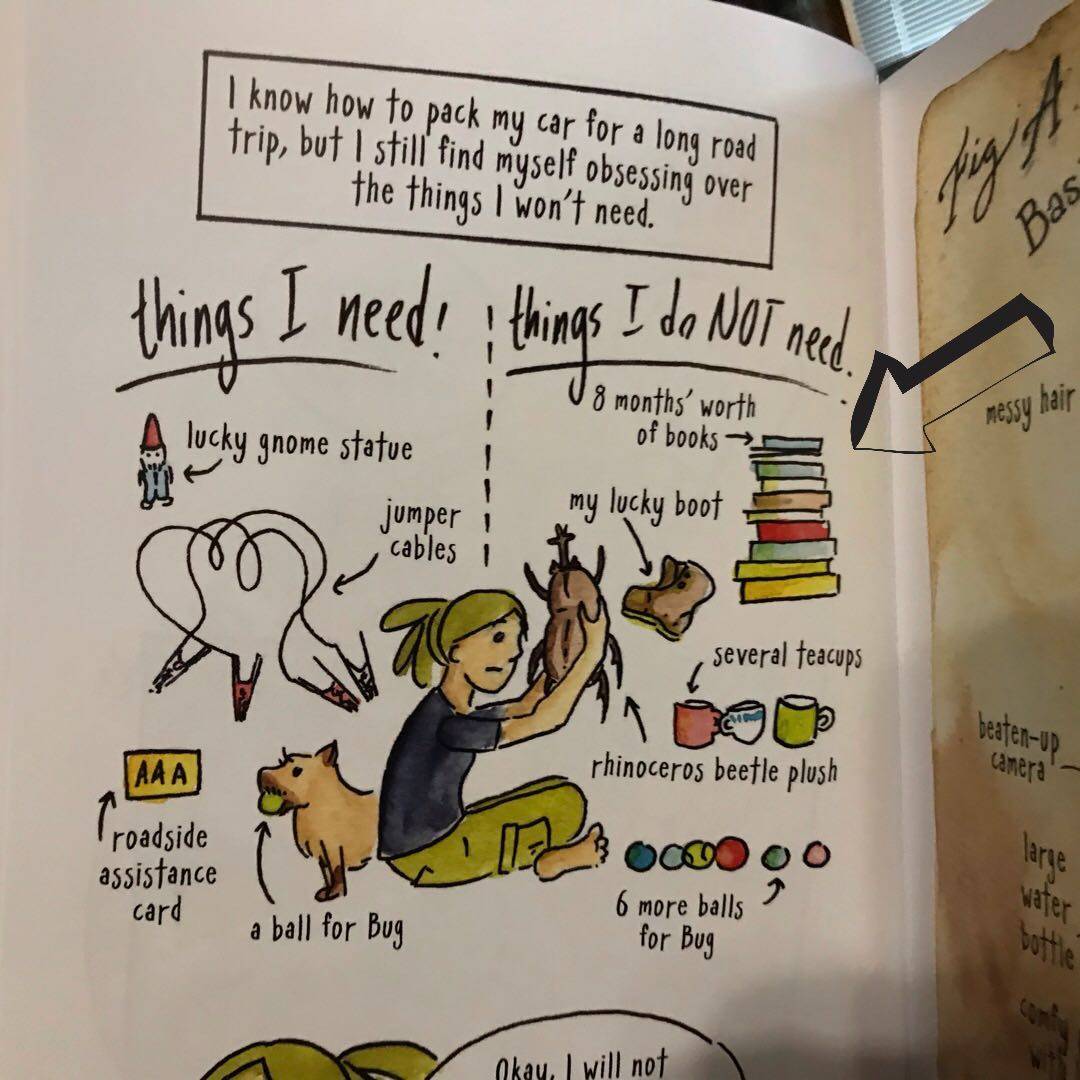 I know how to pack my car for a long road
trip, but I still find myself obsessing over
the things I won't need.
things I need!
things I do NOT need.
lucky gnome statue
jumper
cables
AAA
roadside
assistance
card
a ball for Bug
8 months' worth
of books
my lucky boot
several teacups
rhinoceros beetle plush
6 more balls
for Bug
Okay, I will not
Fig A
messy hair
beaten-up
camera
large
water
bottle
comfy